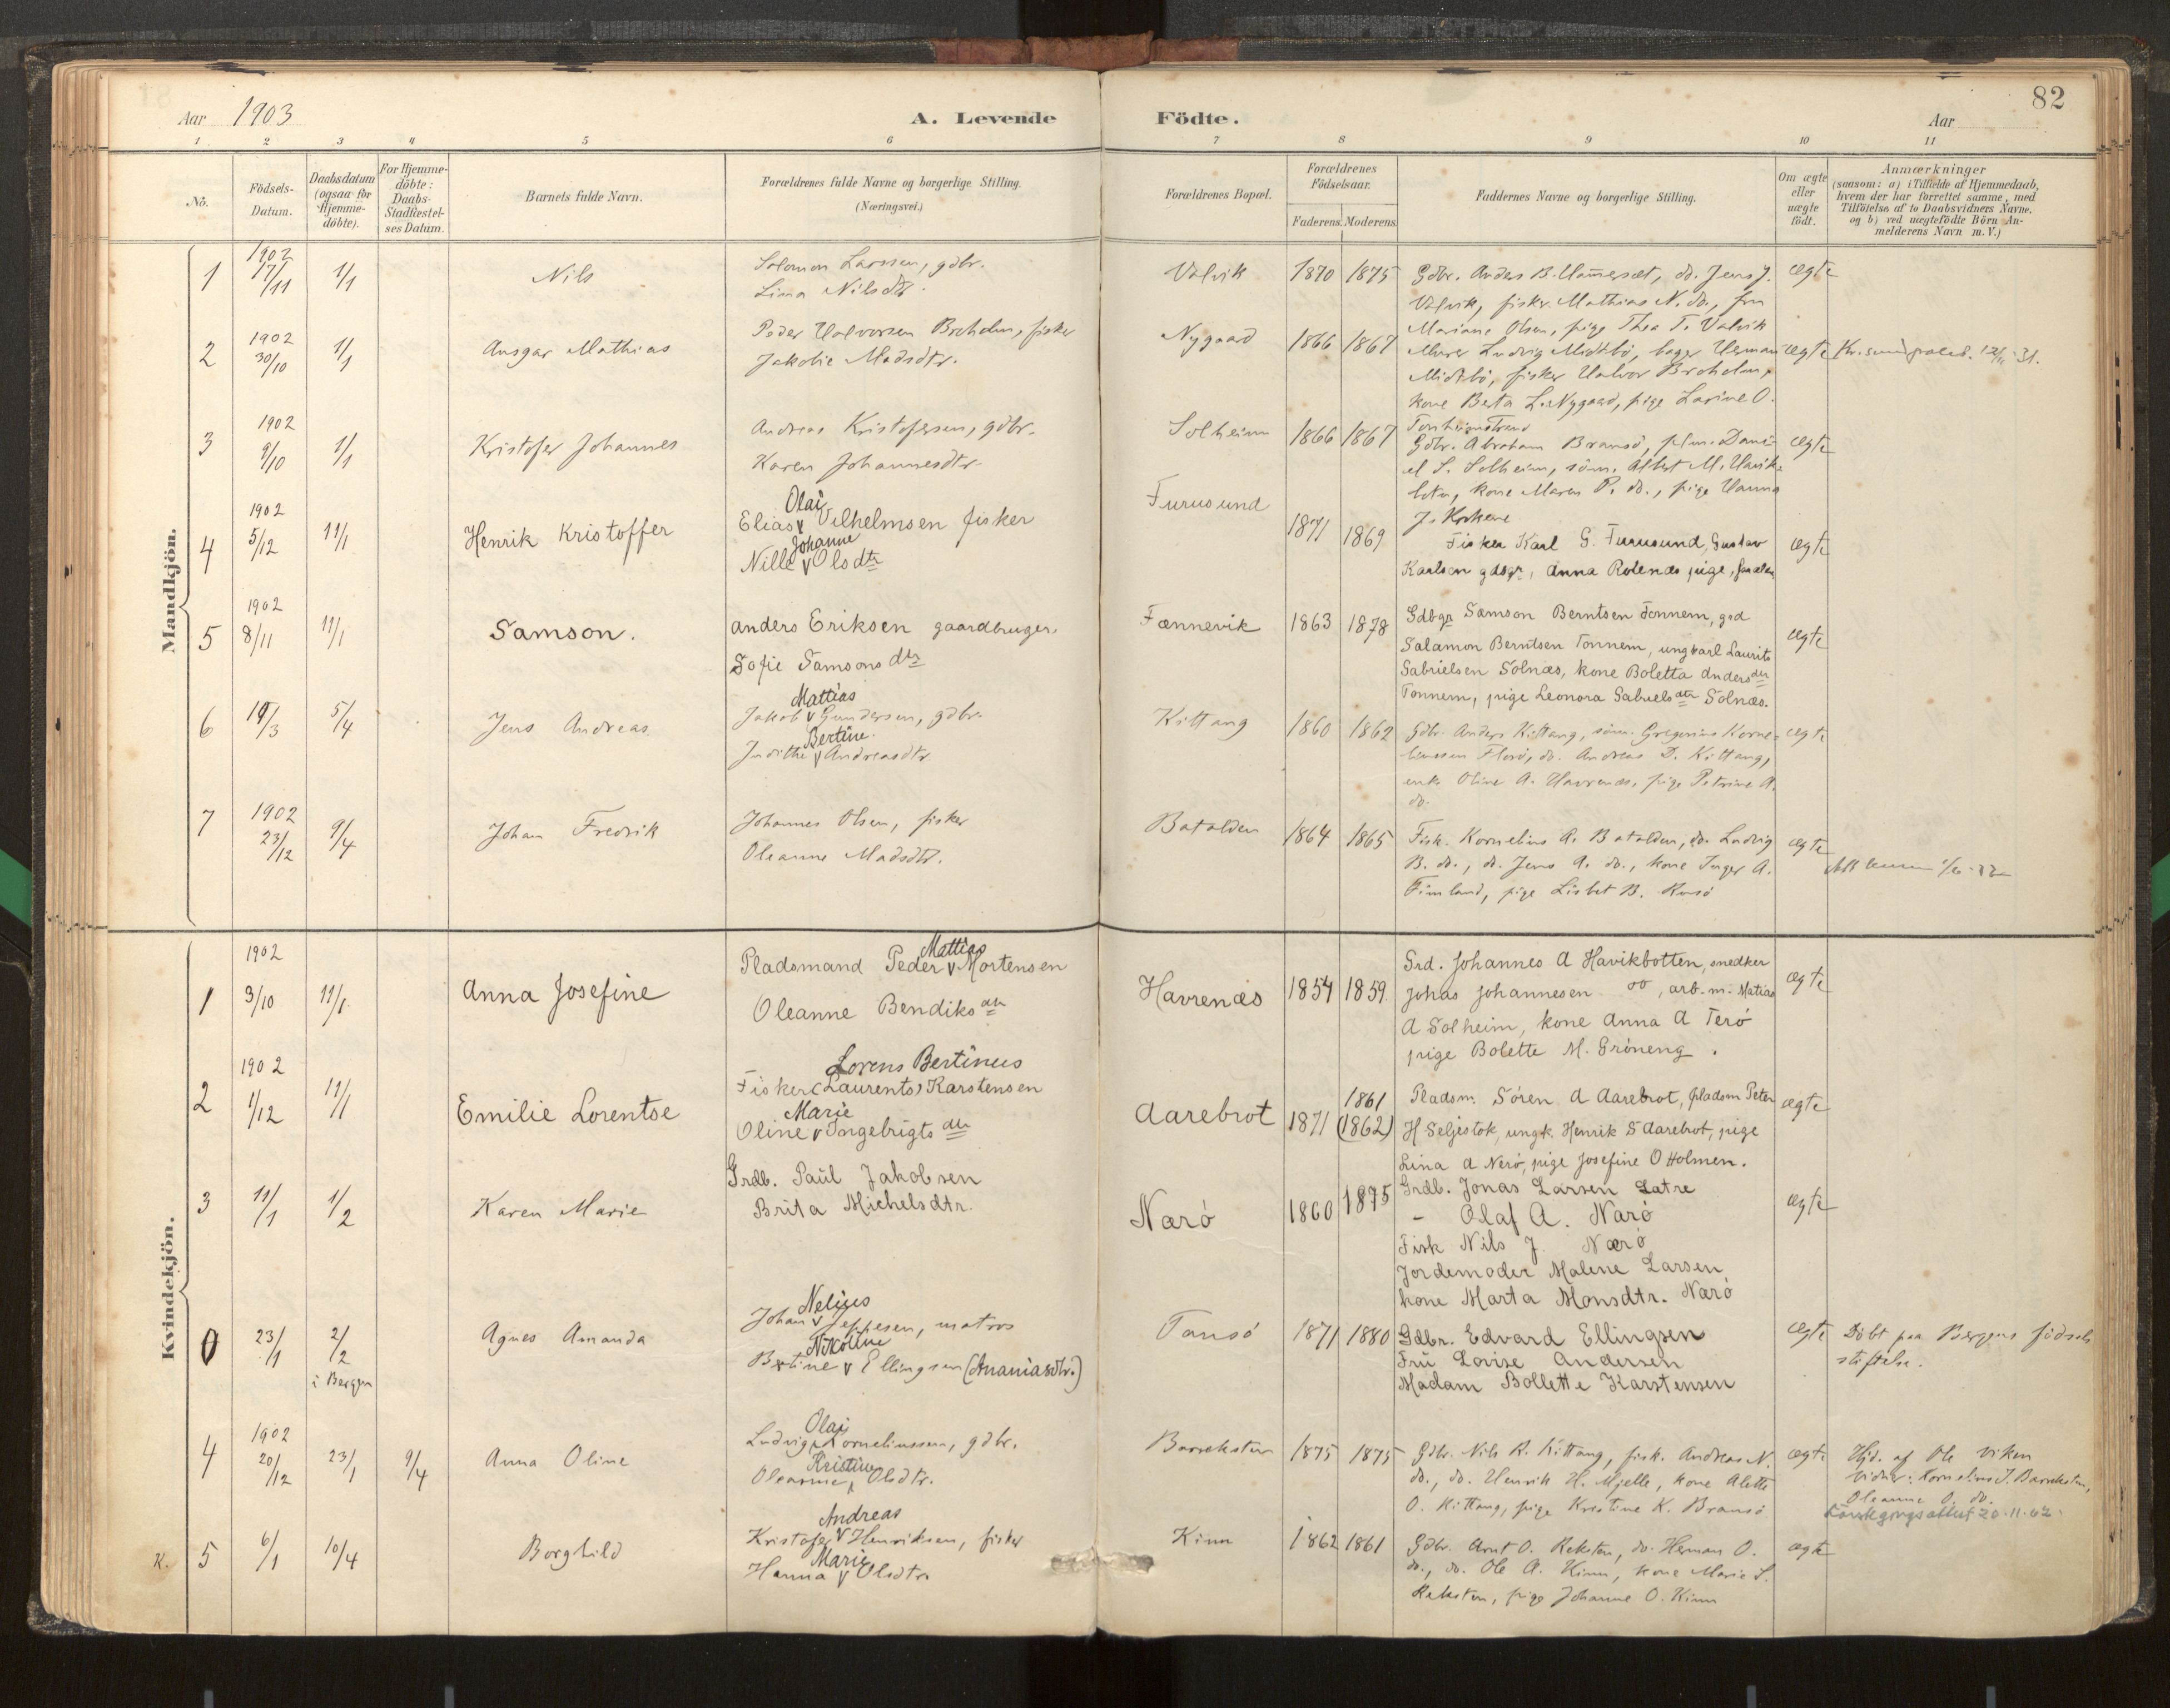 Aar 1903
A. Levende
Födte.
82
Aar
1 2 3 4 5 6 7 8 9 10 11
No.
Födsels-
Datum.
Daabsdatum
(ogsaa for
Hjemme-
döbte).
For Hjemme-
döbte:
Daabs-
Stadfæstel-
ses Datum.
Barnets fulde Navn.
Forældrenes fulde Navne og borgerlige Stilling.
(Næringsvei.)
Forældrenes Bopæl.
Forældrenes
Födselsaar.
Faderens. Moderens.
Faddernes Navne og borgerlige Stilling.
Om ægte
eller
uægte
födt.
Anmærkninger
(saasom: a) i Tilfælde af Hjemmedaab,
hvem der har forrettet samme, med
Tilföielse af to Daabsvidners Navne.
og b) ved uægtefödte Börn An-
melderens Navn m. V.)
Mandkjön.
1 1902 17/11 1/1 Nils
Solomon Larssen, gdbr.
Lina Nilsdtr.
Valvik 1870 1875
Gdbr. Anders B. Hammerset, do. Jens J.
Valvik, fisker Mathias N. do., fru
Mariane Olsen, pige Thea T. Valvik
ægte
2 1902 30/10 1/1 Ansgar Mathias
Peder Halvorsen Broholm, fisker
Jakobie Madsdtr.
Nygaard 1866 1867
Murer Ludvig Midtbö, bager Herman
Midtbö, fisker Halvor Broholm,
kone Berta L. Nygaard, pige Larine O.
Tonheimstrand
ægte
3 1902 9/10 1/1 Kristofer Johannes
Andreas Kristofersen, gdbr.
Karen Johannesdtr.
Solheim 1866 1867
Gdbr. Abraham Bransö, plm. Dani-
el S. Solheim, sönn. Albert M. Havik-
botn, kone Maren P. do., pige Hanna
J.
ægte
4 1902 5/12 11/1 Henrik Kristoffer
Olai
Elias v Vilhelmsen fisker
Johanne
Nille v Olsdtr
Furusund 1871 1869
Fisker Karl G. Furusund, Gustav
Karlsen gdbgr, Anna Rotenæs pige,
ægte
5 1902 8/11 11/1 Samson.
Anders Eriksen gaardbruger.
Sofie Samsonsdtr
Fænnevik 1863 1878
Gdbgr Samson Berntsen Tonnem, grd
Salamon Berntsen Tonnem, ungkarl Laurits
Gabrielsen Solnæs, kone Boletta Andersdtr
Tonnem, pige Leonora Gabrielsdtr Solnæs.
ægte
6 5/4 Jens Andreas
Mattias
Jakob v Gundersen, gdbr.
Bertine
Judithe v Andreasdtr
Kittang 1860 1862
Gdbr. Anders Kittang, sönn. Gregorius Korne-
liussen Florö, do. Andreas D. Kittang,
enke Oline A. Havrenæs, pige Petrine A.
do.
ægte
7 1902 23/12 9/4 Johan Fredrik
Johannes Olsen, fisker
Oleanne Madsdtr.
Batalden 1864 1865
Fisk. Kornelius A. Batalden, do. Ludvig
B. do., do. Jens A. do., kone Inger A.
Fimland, pige Lisbet B.
ægte
Kvindekjön.
1 1902 3/10 11/1 Anna Josefine
Mattias
Pladsmand Peder v Mortensen
Oleanne Bendiksdtr
Havrenæs 1854 1859
Grd. Johannes A Havikbotten, snedker
Johas Johannesen do, arb.m. Matias
A Solheim, kone Anna A Terö
pige Bolette M. Gröneng.
ægte
2 1902 1/12 11/1 Emilie Lorentse
Lorens Bertinus
Fisker (Laurents) Karstensen
Marie
Oline v Ingebrigtsdtr
Aarebrot 1871 1861
(1862)
Pladsm. Sören A Aarebrot, pladsm Peter
H Seljestok, ungk. Henrik S Aarebrot, pige
Lina A Nerö, pige Josefine O Holmen.
ægte
3 11/1 1/2 Karen Marie
Grdb. Paul Jakobsen
Brita Michelsdtr.
Narö 1860 1875
Grdb. Jonas Larsen Latre
- Olaf A. Narö
Fisk Nils J. Nærö
Jordemoder Malene Larsen
kone Marta Monsdtr. Narö
ægte
0 23/1 2/2 i Bergen
Agnes Amanda
Nelius
Johan v Jeppesen, matros
Nikoline
Bertine v Ellingsen (Ananiasdtr.)
Tansö 1871 1880
Gdbr. Edvard Ellingsen
Fru Lovise Andersen
Madam Bollette Karstensen
ægte
Döbt paa Bergens födsels
stiftelse.
4 1902 20/12 23/1 9/4 Anna Oline
Olai
Ludvig v Korneliussen, gdbr.
Kristine
Oleanne v Olsdtr.
Barrekster 1875 1875
Gdbr. Nils R. Kittang, fisk. Andreas N.
do., do. Henrik H. Mjelle, kone Alette
O. Kittang, pige Kristine K. Bransö
ægte
Hjd. af Ole Viken
Vidner: Kornelius J. Barreksten,
Oleanne O. do.
20.11.62
K. 5 6/1 10/4 Borghild
Andreas
Kristofer v Henriksen, fisker
Marie
Hanna v Olsdtr.
Kinn 1862 1861
Gdbr. Arnt O. Reksten, do. Herman O.
do., do. Ole A. Kinn, kone Marie S.
Reksten, pige Johanne O. Kinn
ægte